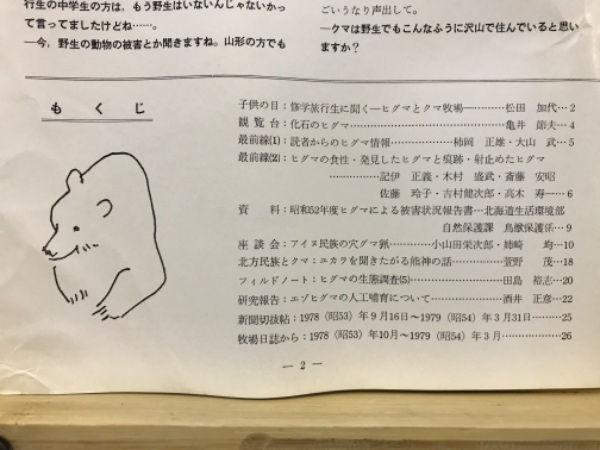 行生の中学生の方は、もう野生はいないんじゃないかっ
て言ってましたけどね……。
―今、野生の動物の被害とか聞きますね。山形の方でも
ごいうなり声出して。
―クマは野生でもこんなふうに沢山で住んでいると思い
ますか？
もくじ
子供の目：修学旅行生に聞く―ヒグマとクマ牧場…………松田 加代…2
観覧台：化石のヒグマ……………………………………亀井 節夫…4
最前線(1)：読者からのヒグマ情報……………柿岡 正雄・大山 武…5
最前線(2)：ヒグマの食性・発見したヒグマと痕跡・射止めたヒグマ
……………記伊 正義・木村 盛武・斎藤 安昭
佐藤 玲子・吉村健次郎・高木 寿――6
資料：昭和52年度ヒグマによる被害状況報告書…北海道生活環境部
自然保護課 鳥獣保護係…9
座談会：アイヌ民族の穴グマ猟…………小山田栄次郎・姉崎 均…10
北方民族とクマ：ユカラを聞きたがる熊神の話……………萱野 茂…18
フィルドノート：ヒグマの生態調査(5)…………………田島 裕志…20
研究報告：エゾヒグマの人工哺育について………………酒井 正彦…22
新聞切抜帖：1978（昭53）年9月16日～1979（昭54）年3月31日………25
牧場日誌から：1978（昭53）年10月～1979（昭54）年3月………………26
― 2 ―